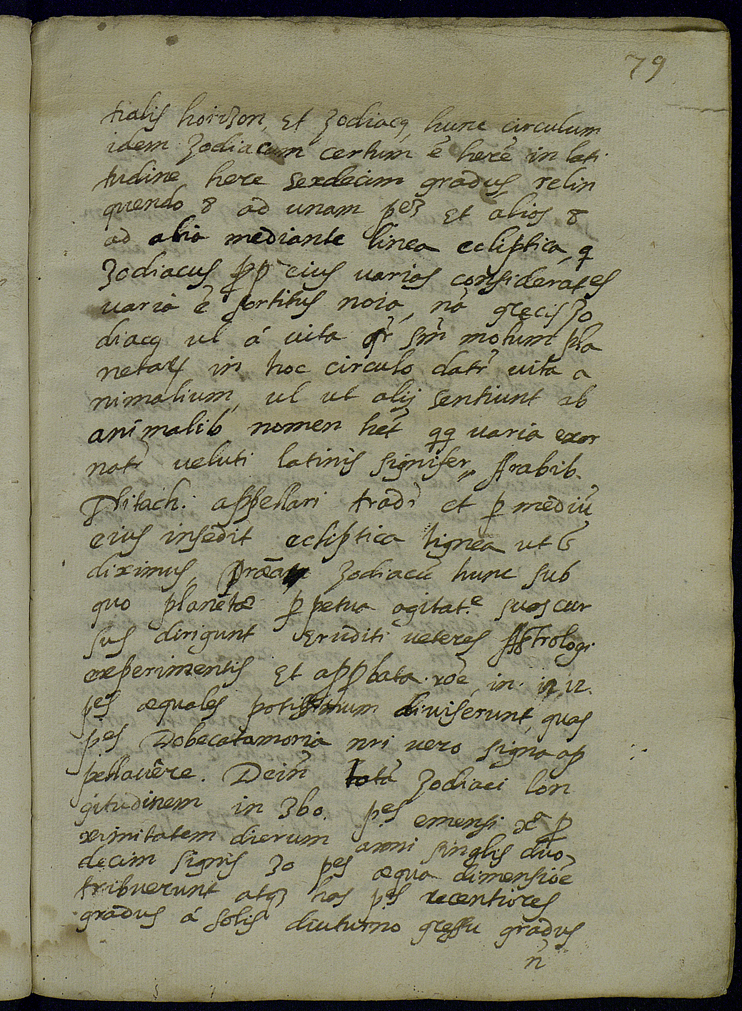 79
tialis horizon, Et Zodiacq hunc circulum
idem Zodiacum certum ē here in lati
tudine here sexdecim gradus relin
quendo 8 ad unam Et alios 8
ad alia mediante linea ecliptica, q
Zodiacus pp eius varias
varia ē sortitus noia, nā grecis Zo
diacq ul á uita qr̄ sm̄ motum pla
netar in hoc circulo datr̄ uita a
nimalium, ul ut alij sentiunt ab
animalib nomen het qq varia exor
natr̄ veluti latinis signifer, Arabib.
appellari trad et p mediū
eius insedit ecliptica lignea ut
diximus, Zodiacū hunc sub
quo planetæ ppetua suos cur
sus dirigunt Eruditi veteres Astrologi
experimentis Et appbata roē, in 12.
pes æquales potissimum diviserunt, quas
pes Dodecatamoria nri vero signa ap
pellavêre. Dein totā Zodiaci lon
gitudinem in 360. pes emensi p
ximitatem dierum anni singlis duo
decim signis 30 pes æqua dimensiōe
tribuerunt atqꝫ has pes recentiores
gradus á solis diuturno gressu gradus
n̄